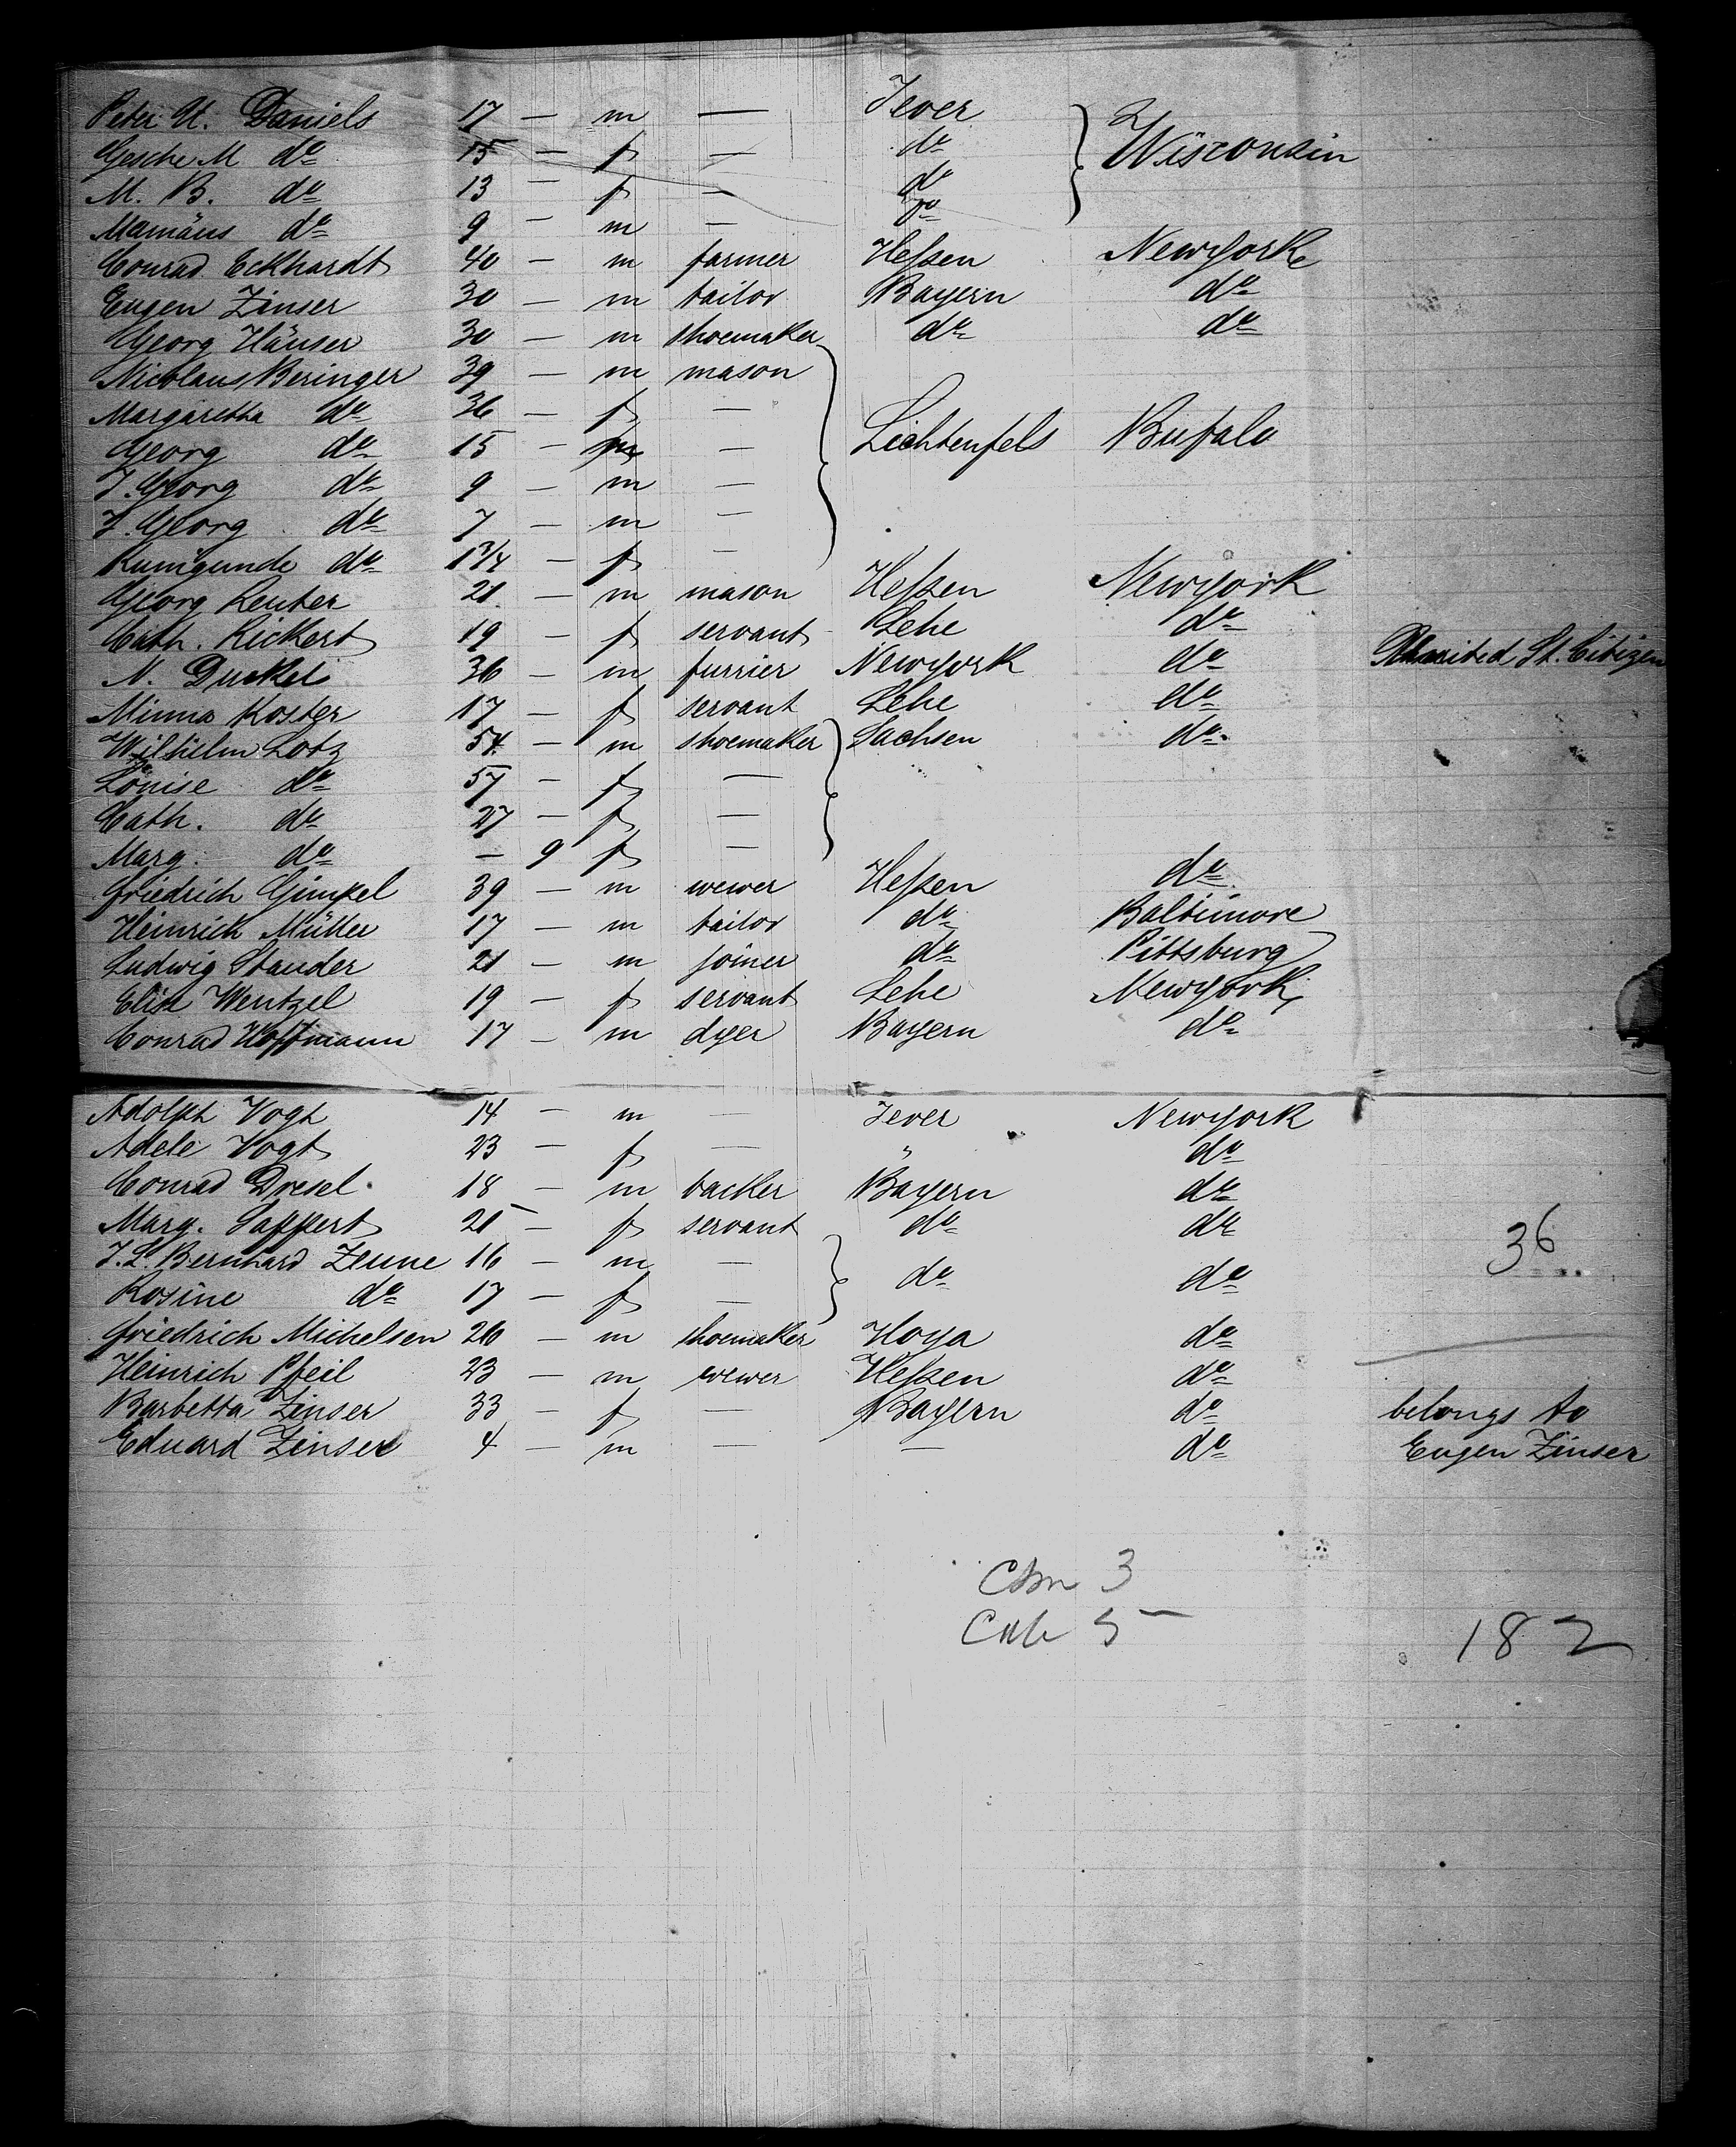 Peter U. Daniels 17 — m — Jever Wisconsin
Gesche M do 15 — f — do
M. B. do 13 — f — do
Mamäus do 9 — m — do
Conrad Eckhardt 40 — m farmer Heßen Newyork
Eugen Zinser 30 — m tailor Bayern do
Georg Häuser 30 — m shoemaker do do
Nicolaus Beringer 39 — m mason
Margaretha do 36 — f —
Georg do 15 — m — Lichtenfels Bufalo
J. Georg do 9 — m —
J. Georg do 7 — m —
Kunigunde do 1 3/4 — f —
Georg Reuter 21 — m mason Heßen Newyork
Cath. Rickert 19 — f servant Lehe do
N. Duckel 36 — m furrier Newyork do United St. Citizen
Minna Koster 17 — f servant Lehe do
Wilhelm Lotz 54 — m shoemaker Sachsen do
Louise do 57 — f —
Cath. do 27 — f —
Marg. do — 9 f —
Friedrich Gimpel 39 — m wewer Heßen do
Heinrich Müller 17 — m tailor do Baltimore
Ludwig Stauder 21 — m joiner do Pittsburg
Elise Wentzel 19 — f servant Lehe Newyork
Conrad Hoffmann 17 — m dyer Bayern do
Adolph Vogt 14 — m — Jever Newyork
Adele Vogt 23 — f — " do
Conrad Dresel 18 — m backer Bayern do
Marg. Sappert 21 — f servant do do
J. L. Bernhard Zeune 16 — m — do do 36
Rosine do 17 — f —
Friedrich Michelsen 26 — m shoemaker Hoya do
Heinrich Pfeil 23 — m wewer Heßen do
Barbetta Zinser 33 — f — Bayern do belongs to
Eduard Zinser 4 — m — — do Eugen Zinser
3
5
182